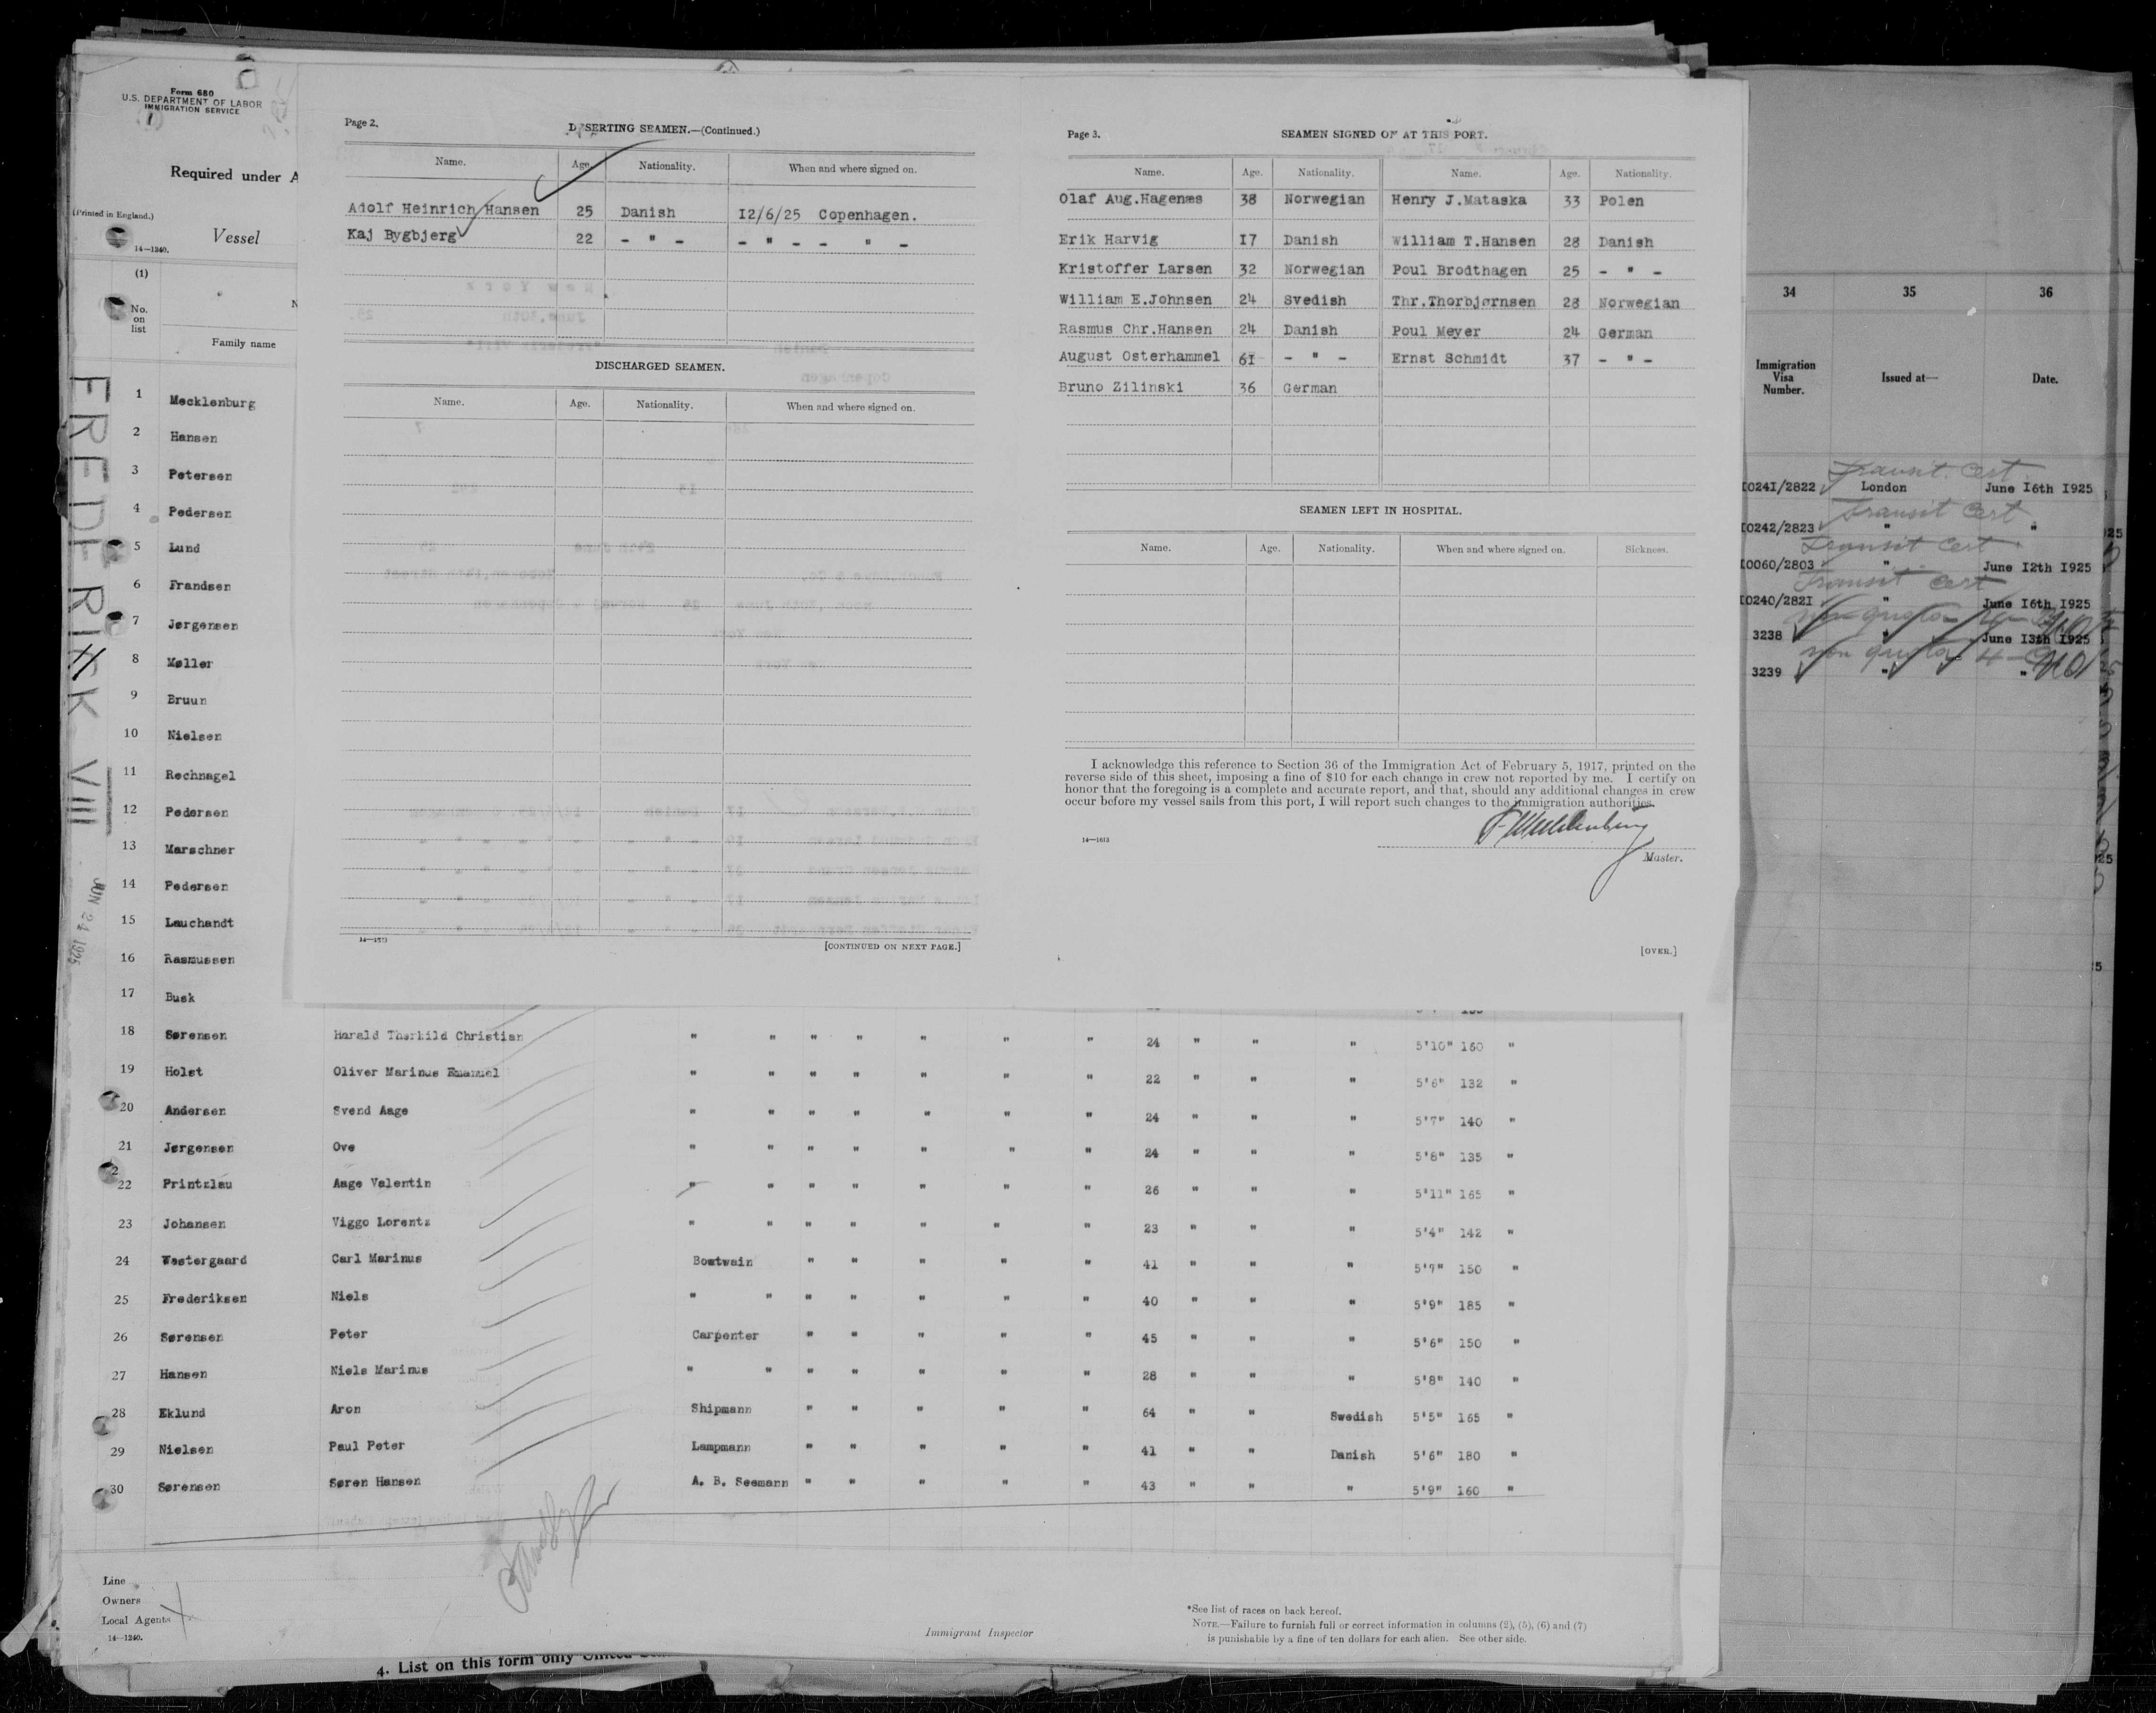 Form 680
U.S. DEPARTMENT OF LABOR
IMMIGRATION SERVICE
Required under A
(Printed in England.)
Vessel
14—1240.
(1)
No.
on
list
Family name
FREDERIK VIII
JUN 24 1925
1 Mecklenburg
2 Hansen
3 Petersen
4 Pedersen
5 Lund
6 Frandsen
7 Jørgensen
8 Møller
9 Bruun
10 Nielsen
11 Rechnagel
12 Pedersen
13 Marschner
14 Pedersen
15 Lauchandt
16 Rasmussen
17 Busk
Page 2.
DESERTING SEAMEN.—(Continued.)
Name. Age. Nationality. When and where signed on.
Adolf Heinrich Hansen 25 Danish I2/6/25 Copenhagen.
Kaj Bygbjerg 22 - " - - " - - " -
DISCHARGED SEAMEN.
Name. Age. Nationality. When and where signed on.
[CONTINUED ON NEXT PAGE.]
Page 3.
SEAMEN SIGNED ON AT THIS PORT.
Name. Age. Nationality. Name. Age. Nationality.
Olaf Aug.Hagenæs 38 Norwegian Henry J.Mataska 33 Polen
Erik Harvig I7 Danish William T.Hansen 28 Danish
Kristoffer Larsen 32 Norwegian Poul Brodthagen 25 - " -
William E.Johnsen 24 Svedish Thr.Thorbjørnsen 28 Norwegian
Rasmus Chr.Hansen 24 Danish Poul Meyer 24 German
August Osterhammel 6I - " - Ernst Schmidt 37 - " -
Bruno Zilinski 36 German
SEAMEN LEFT IN HOSPITAL.
Name. Age. Nationality. When and where signed on. Sickness.
I acknowledge this reference to Section 36 of the Immigration Act of February 5, 1917, printed on the
reverse side of this sheet, imposing a fine of $10 for each change in crew not reported by me. I certify on
honor that the foregoing is a complete and accurate report, and that, should any additional changes in crew
occur before my vessel sails from this port, I will report such changes to the immigration authorities.
14—1613
Master.
[OVER.]
34 35 36
Immigration
Visa
Number.
Issued at—
Date.
Transit Cert
I0241/2822 London June I6th I925
Transit Cert
I0242/2823 " "
Transit Cert
I0060/2803 " June I2th I925
Transit Cert
I0240/282I " June I6th I925
non quota
3238 " June I3th I925
non quota
3239 " "
18 Sørensen Harald Therkild Christian " " " " " " " 24 " " " 5'10" 160 "
19 Holst Oliver Marinus Emanuel " " " " " " " 22 " " " 5'6" 132 "
20 Andersen Svend Aage " " " " " " " 24 " " " 5'7" 140 "
21 Jørgensen Ove " " " " " " " 24 " " " 5'8" 135 "
22 Printzlau Aage Valentin " " " " " " " 26 " " " 5'11" 165 "
23 Johansen Viggo Lorentz " " " " " " " 23 " " " 5'4" 142 "
24 Westergaard Carl Marinus Boatwain " " " " " 41 " " " 5'7" 150 "
25 Frederiksen Niels " " " " " " " 40 " " " 5'9" 185 "
26 Sørensen Peter Carpenter " " " " " 45 " " " 5'6" 150 "
27 Hansen Niels Marinus " " " " " " " 28 " " " 5'8" 140 "
28 Eklund Aron Shipmann " " " " " 64 " " Swedish 5'5" 165 "
29 Nielsen Paul Peter Lampmann " " " " " 41 " " Danish 5'6" 180 "
30 Sørensen Søren Hansen A. B. Seemann " " " " " 43 " " " 5'9" 160 "
Line
Owners
Local Agents
14—1240.
Immigrant Inspector
*See list of races on back hereof.
NOTE.—Failure to furnish full or correct information in columns (2), (5), (6) and (7)
is punishable by a fine of ten dollars for each alien. See other side.
4. List on this form only United